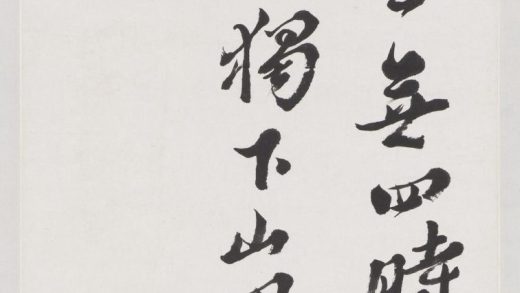 無四時
獨下山